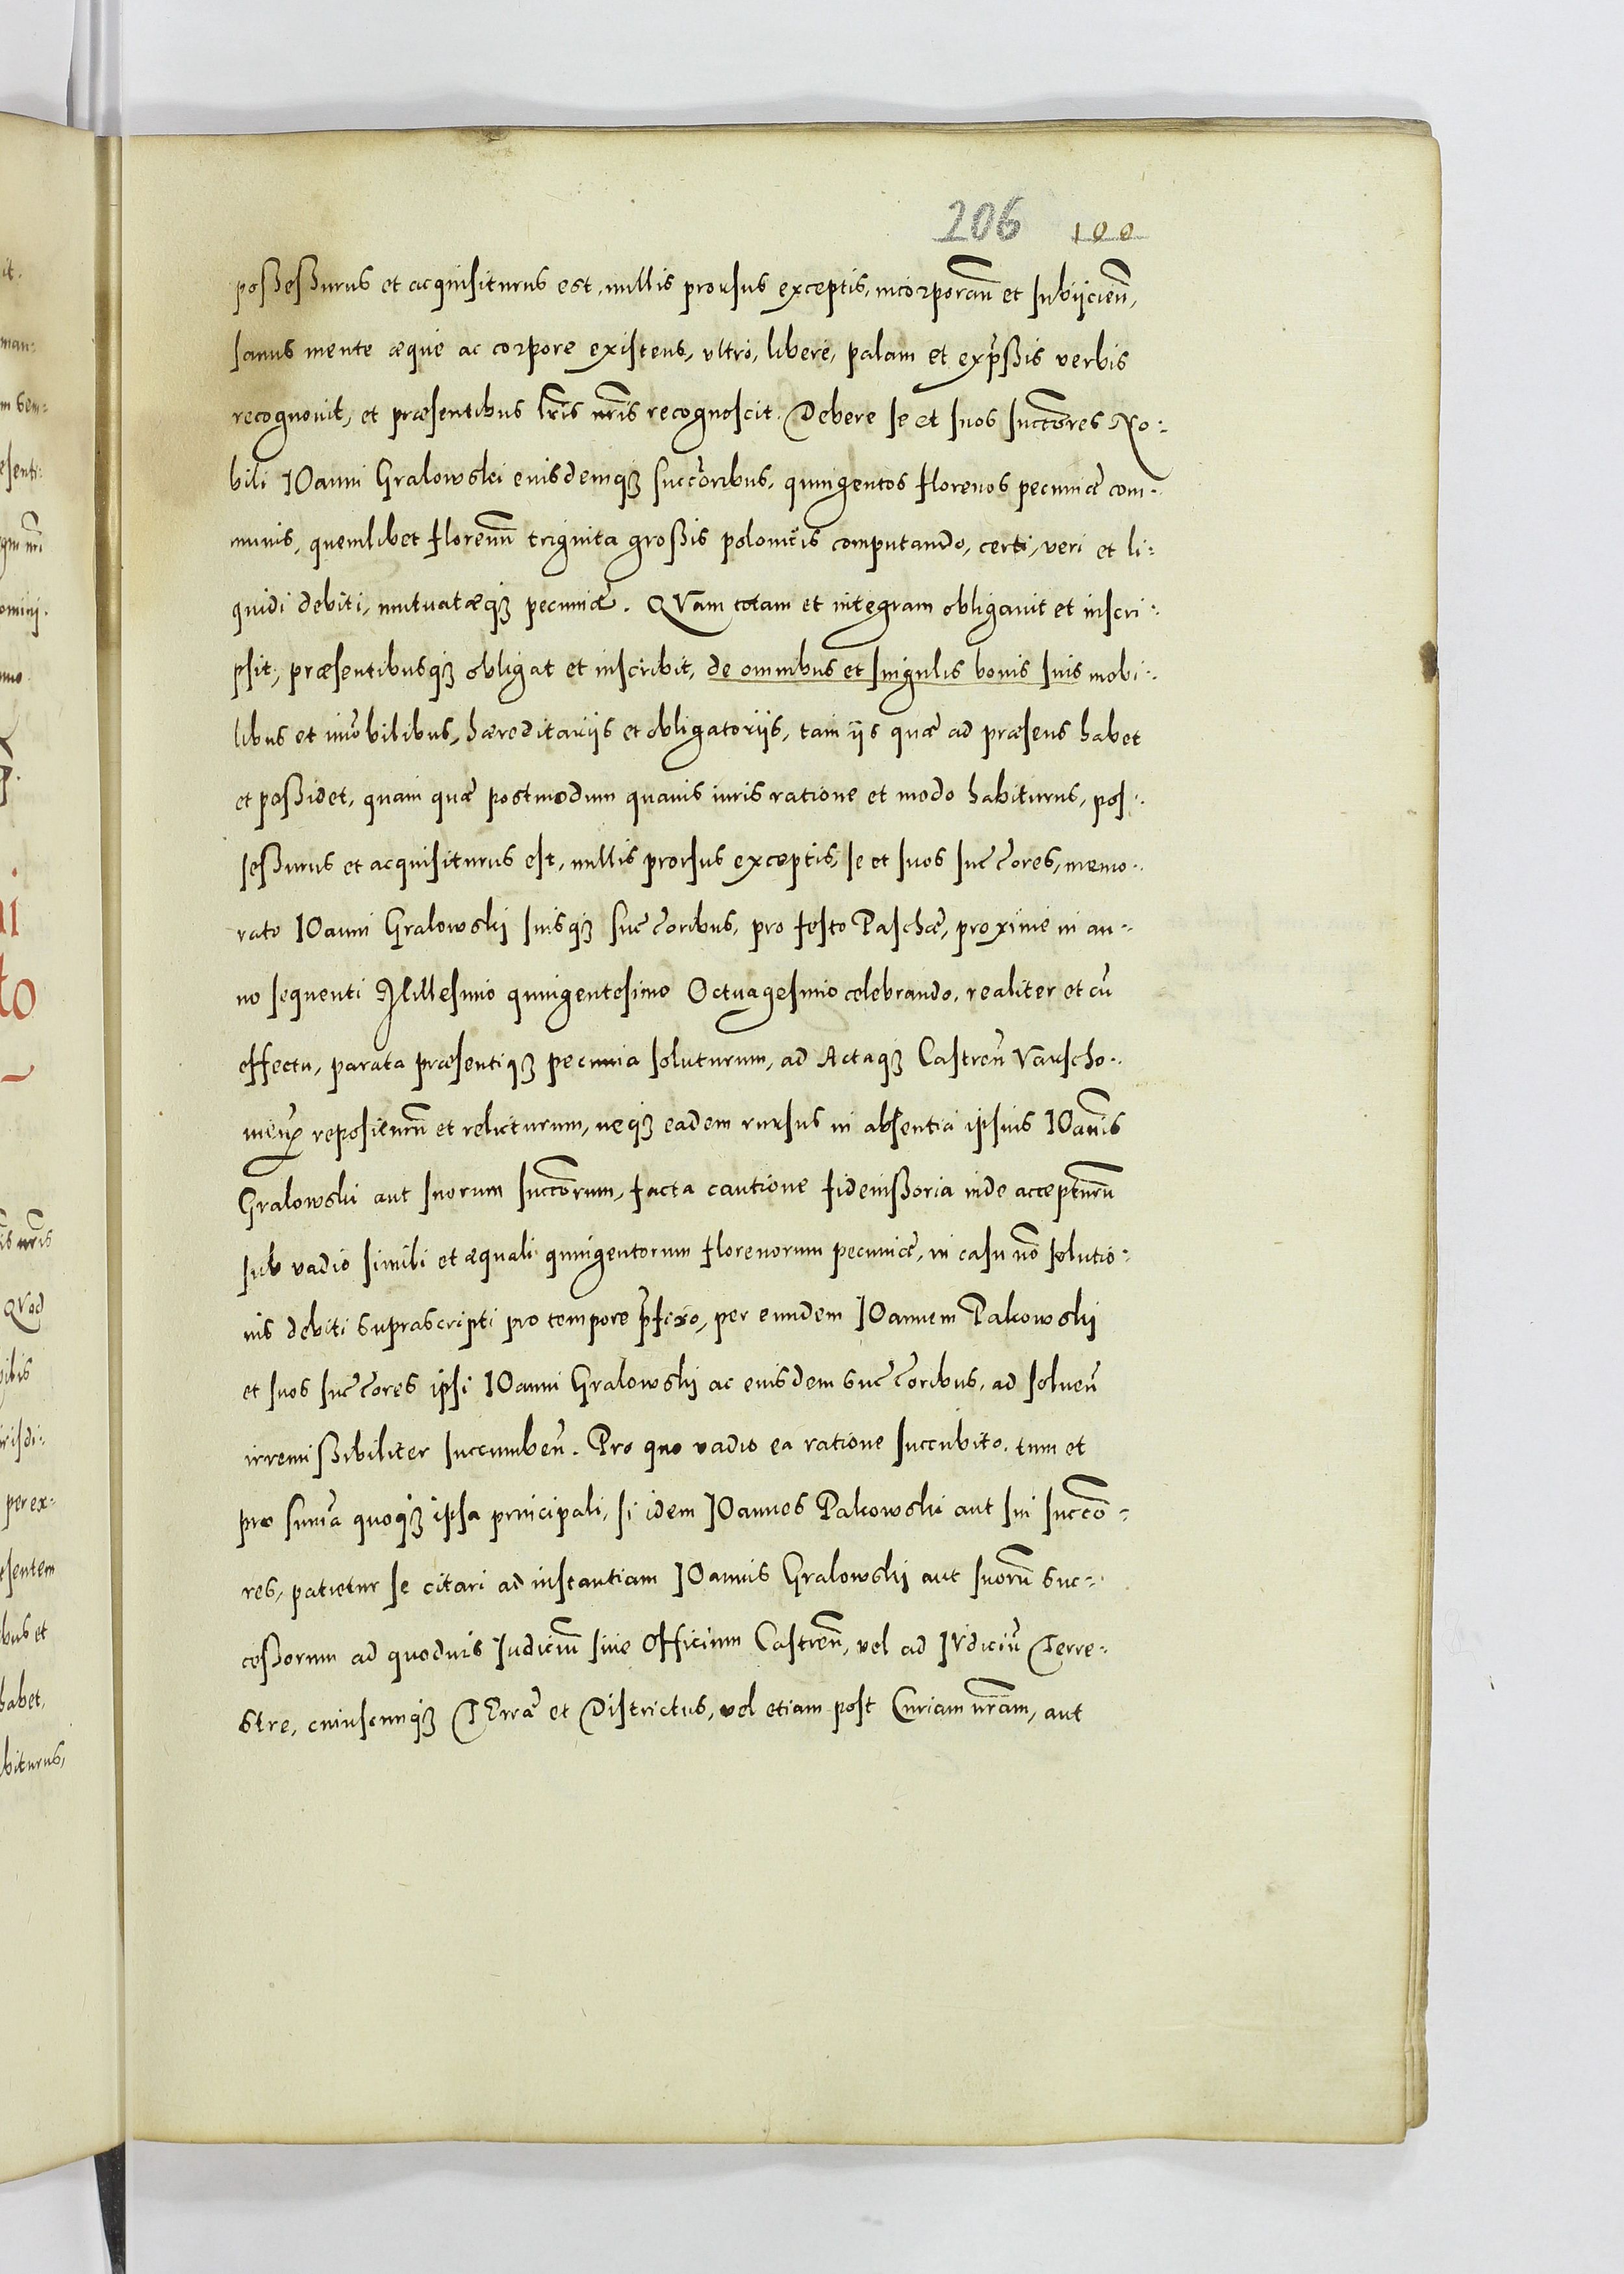 206 100
poßeßurus et acquisiturus est, nullis prorsus exceptis, incorporan̄ et subijcien̄,
sanus mente æque ac corpore existens, ultro, libere, palam et exp̄ßis verbis
recognovit, et præsentibus lr̄is nr̄is recognoscit. Debere se et suos succ̄ores No:
bili IOanni Gralowski eiusdemq̨ succ̄oribus, quingentos florenos pecuniæ com:
munis, quemlibet florenum̄ triginta großis polonic̄is computando, certi, veri et li:
quidi debiti, mutuatæq̨ pecuniæ. QVam totam et integram obligavit et inscri:
psit, præsentibusq̨ obligat et inscribit, de omnibus et singulis bonis suis mobi:
libus et im̄obilibus, hæreditarijs et obligatorijs, tam ijs quæ ad præsens habet
et poßidet, quam quæ postmodum quavis iuris ratione et modo habiturus, pos:
seßurus et acquisiturus est, nullis prorsus exceptis, se et suos succ̄ores, memo:
rato IOanni Gralowskj suisq̨ succ̄oribus, pro festo Paschæ, proxime in an:
no sequenti Millesimo quingentesimo Octuagesimo celebrando, realiter et cū
effectu, parata præsentiq̨ pecunia soluturum, ad Actaq̨ Castren̄ Varscho:
vien̄ repositurū et relicturum, neq̨ eadem rursus in absentia ipsius IOan̄is
Gralowski aut suorum succ̄orum, facta cautione fideiußoria inde accepturū
sub vadio simili et æquali quingentorum florenorum pecuniæ, in casu nō solutio:
nis debiti suprascripti pro tempore p̄fixo, per eundem IOannem Pakowskj
et suos succ̄ores ipsi IOanni Gralowskj ac eiusdem succ̄oribus, ad solven̄
irremißibiliter succumben̄. Pro quo vadio ea ratione succubito, tum et
pro sum̄a quoq̨ ipsa principali, si idem IOannes Pakowski aut sui succ̄o:
res, patietur se citari ad instantiam IOannis Gralowskj aut suorū suc:
ceßorum ad quodvis Iudiciū sive Officium Castren̄, vel ad IVdiciū Terre:
stre, cuiuscunq̨ TErræ et Districtus, vel etiam post Curiam nr̄am, aut